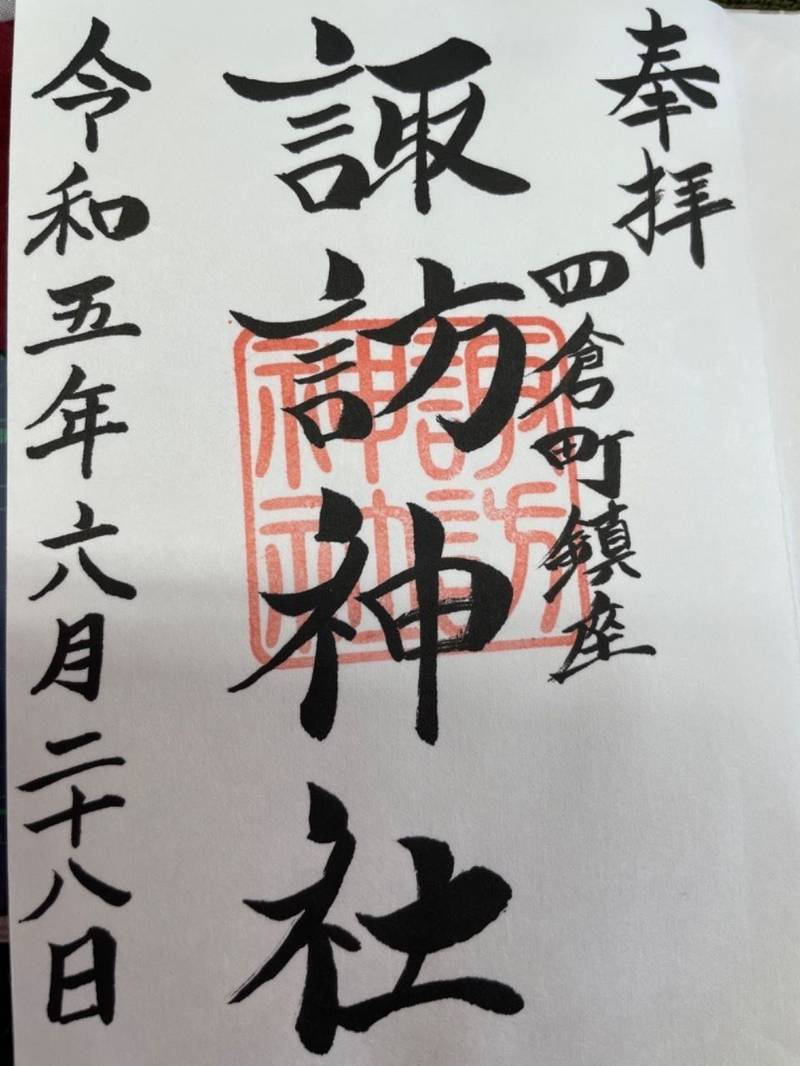 奉拝
四倉町鎮座
諏訪神社
諏訪
神社
令和五年六月二十八日